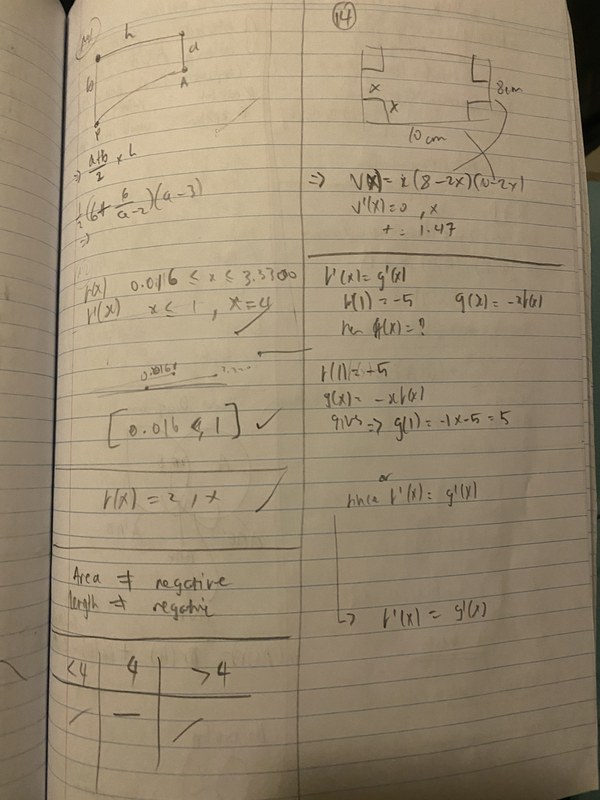 h
a
b
A
P
⇒ a+b/2 × h
1/2 (6 + 6/a-2)(a-3)
⇒
f(x) 0.0116 ≤ x ≤ 3.3300
f'(x) x ≤ 1, x = 4
[0.016, 1] ✓
f(x) = 2, x
Area ≠ negative
length ≠ negative
<4 | 4 | >4
14
x
x
8cm
10 cm
⇒ V(x) = x (8-2x)(10-2x)
V'(x) = 0, x
x = 1.47
f'(x) = g'(x)
f(1) = -5 g(x) = -xf(x)
f(1) = +5
g(x) = -xf(x)
gives ⇒ g(1) = -1x-5 = 5
or
since f'(x) = g'(x)
↳ f'(x) = g'(x)